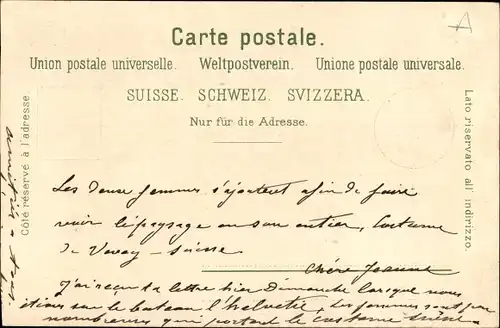 A
Carte postale.
Union postale universelle. Weltpostverein. Unione postale universale.
SUISSE. SCHWEIZ. SVIZZERA.
Nur für die Adresse.
Côté réservé à l'adresse.
Lato riservato all' indirizzo.
Les deux femmes s'ajoutent afin de faire
voir le paysage en son entier, Costume
de Vevey - Suisse
Chère Jeanne
J'ai reçu ta lettre hier Dimanche lorsque nous
étions sur le bateau l'helvétie, les femmes sont peu
nombreuses qui portent le costume suisse